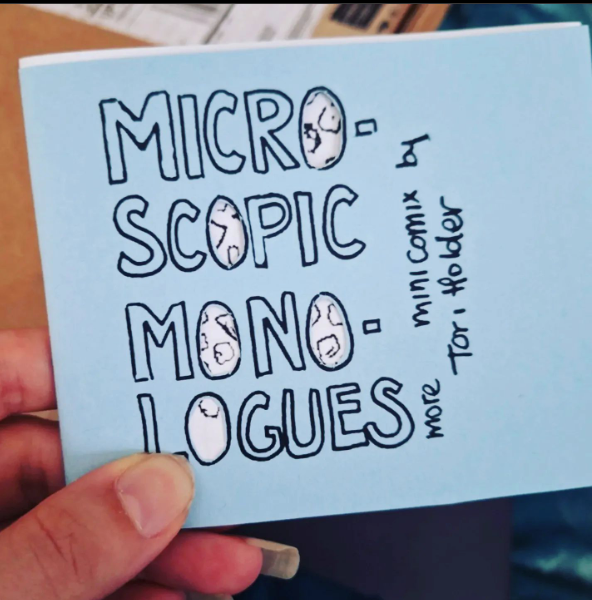 MICRO-
SCOPIC
MONO-
LOGUES
more minicomix by
Tori Holder